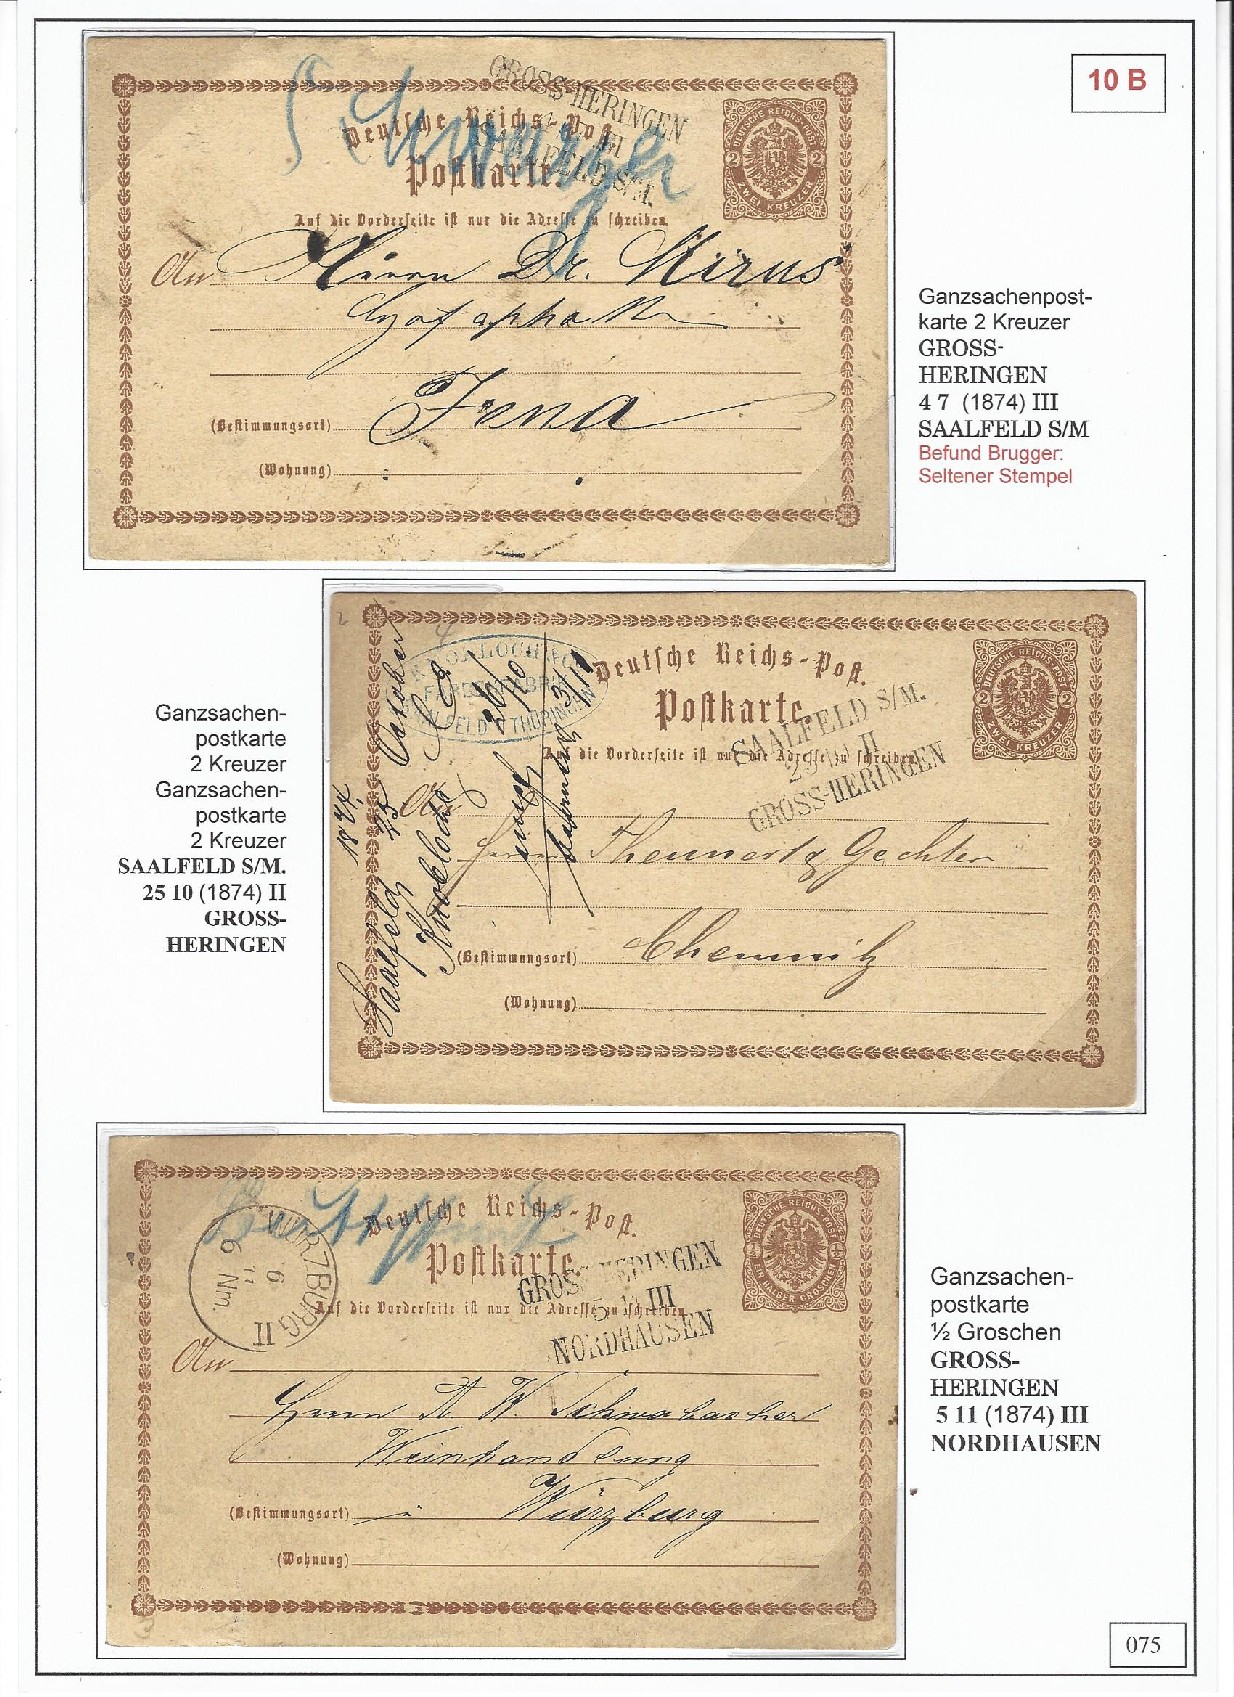 10 B
GROSS-HERINGEN
III
SAALFELD S/M.
Deutsche Reichs-Post.
Postkarte.
DEUTSCHE REICHS-POST
2 2
ZWEI KREUZER
Auf die Vorderseite ist nur die Adresse zu schreiben.
An Herrn Dr. Mirus
Jena
(Bestimmungsort)
(Wohnung)
Ganzsachenpost-
karte 2 Kreuzer
GROSS-
HERINGEN
4 7 (1874) III
SAALFELD S/M
Befund Brugger:
Seltener Stempel
Deutsche Reichs-Post.
Postkarte.
DEUTSCHE REICHS-POST
2 2
ZWEI KREUZER
SAALFELD S/M.
II
GROSS-HERINGEN
Auf die Vorderseite ist nur die Adresse zu schreiben.
SAALFELD THÜRINGEN
1874
Saalfeld 25 October
An
Herrn Theunert & Gechter
(Bestimmungsort) Chemnitz
(Wohnung)
Ganzsachen-
postkarte
2 Kreuzer
Ganzsachen-
postkarte
2 Kreuzer
SAALFELD S/M.
25 10 (1874) II
GROSS-
HERINGEN
Deutsche Reichs-Post.
Postkarte.
DEUTSCHE REICHS-POST
½ ½
EIN HALBER GROSCHEN
WÜRZBURG II
6 11
6 Nm.
GROSS-HERINGEN
5 11 III
NORDHAUSEN
Auf die Vorderseite ist nur die Adresse zu schreiben.
An
Herrn A. W. Schwabacher
Weinhandlung
(Bestimmungsort) i Würzburg
(Wohnung)
Ganzsachen-
postkarte
½ Groschen
GROSS-
HERINGEN
5 11 (1874) III
NORDHAUSEN
075